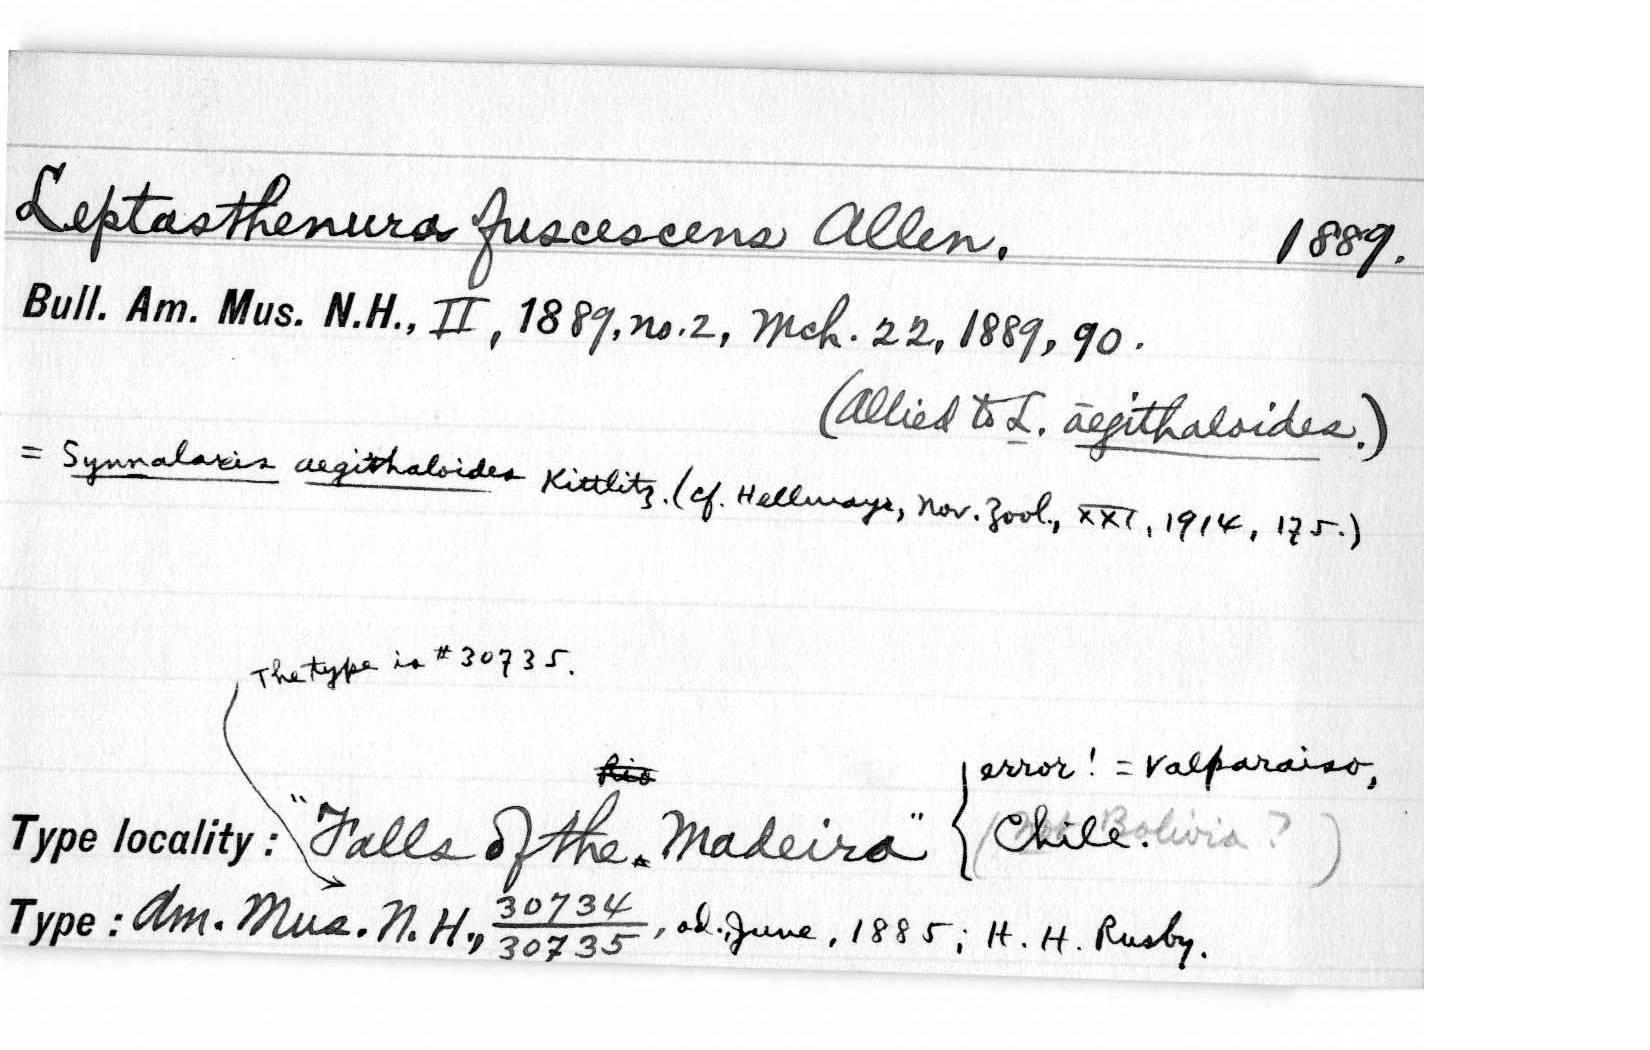 Leptasthenura fuscescens Allen. 1889.
Bull. Am. Mus. N.H., II, 1889, no.2, Mch. 22, 1889, 90.
(Allied to L. aegithaloides.)
= Synnalaxis aegithaloides Kittlitz. (cf. Hellmayr, Nov. Zool., XXI, 1914, 175.)
The type is #30735.
Rio
Type locality: "Falls of the Madeira" { error! = Valparaiso,
Chile. ( Bolivia? )
Type: Am. Mus. N. H., 30734
30735, ad., June, 1885; H. H. Rusby.